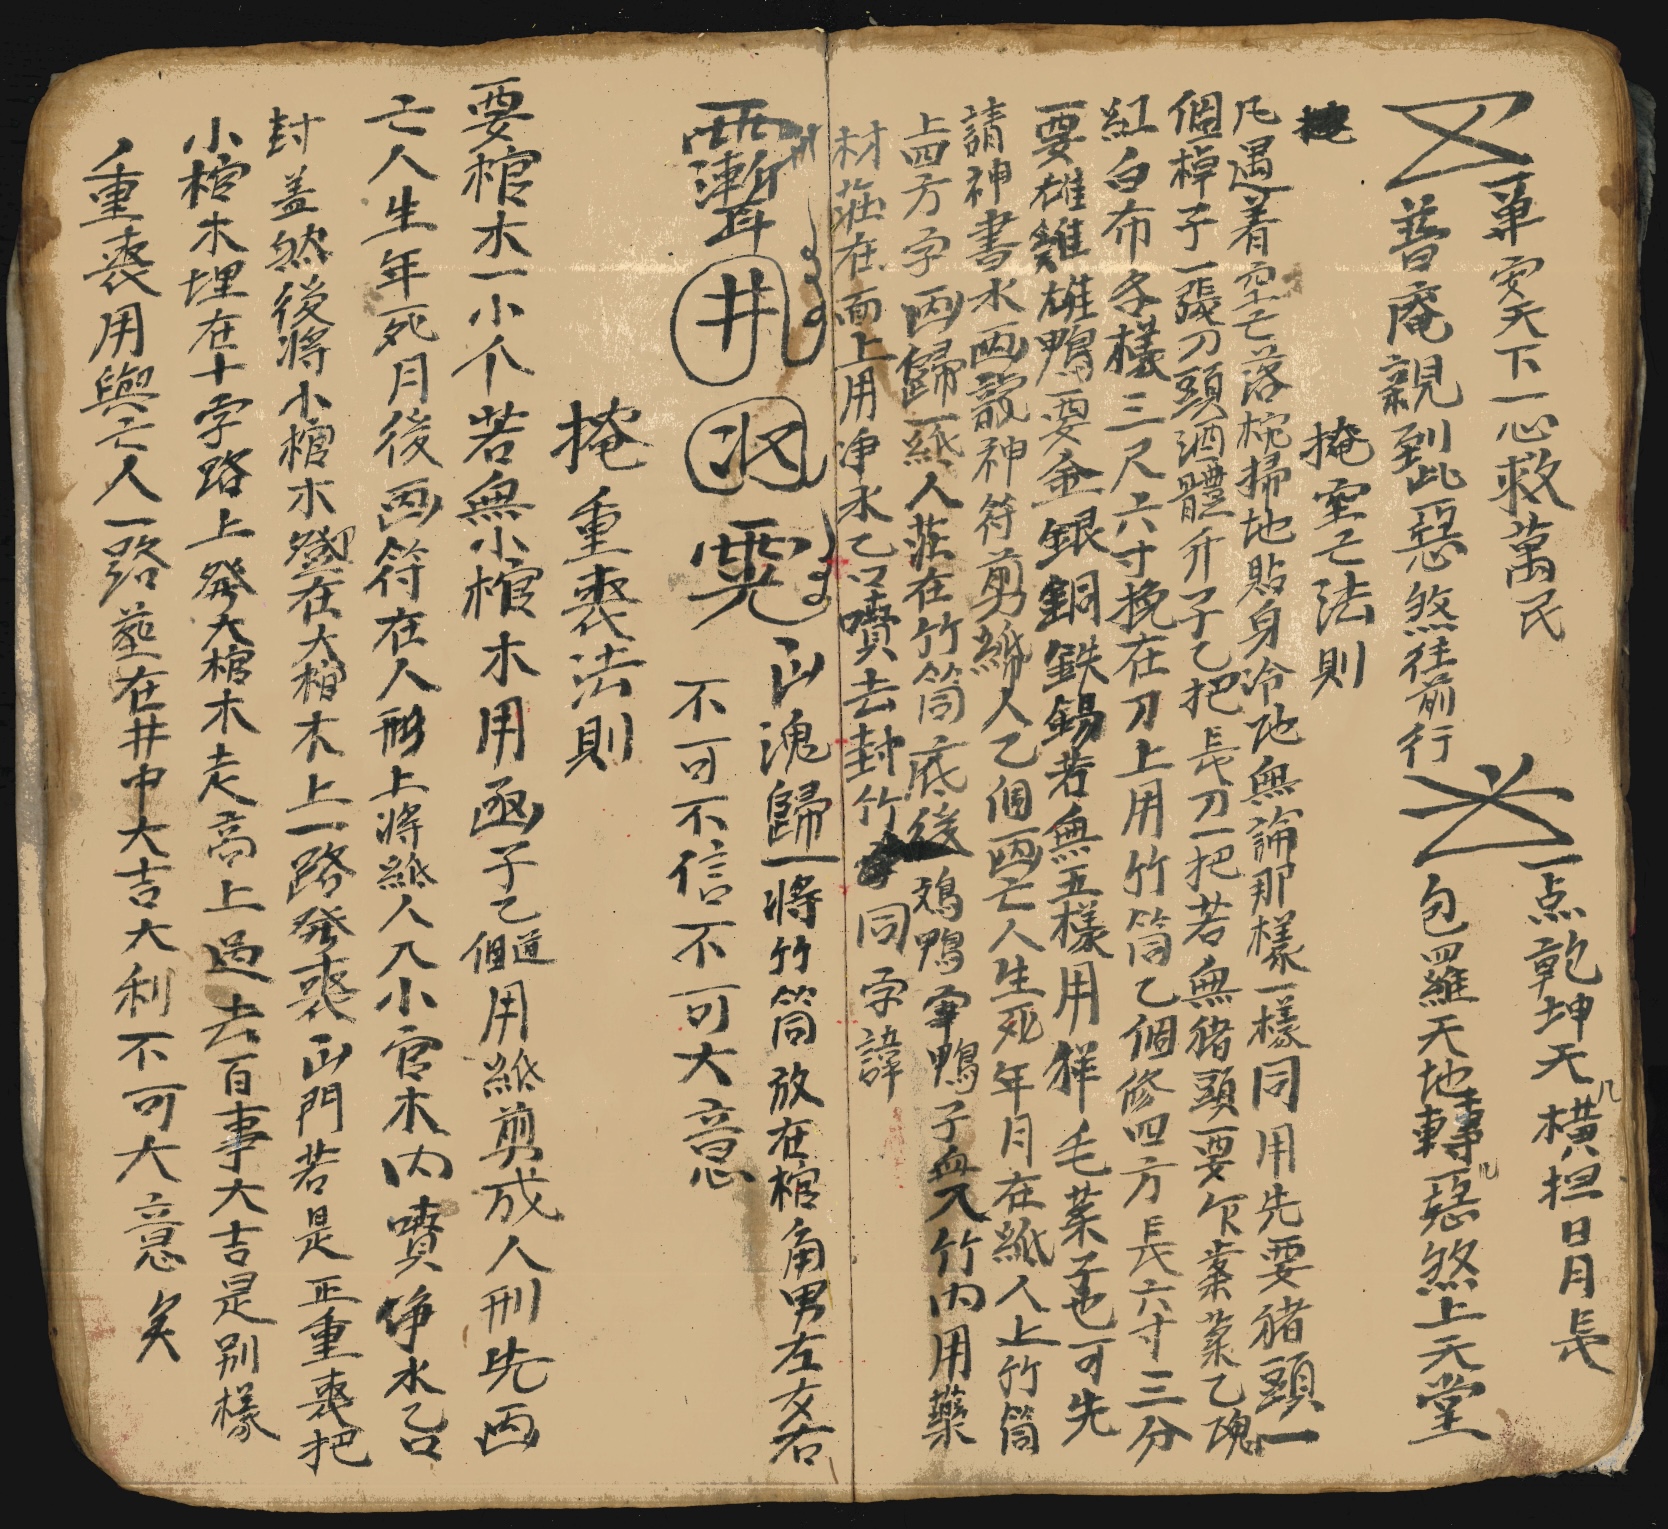 一单安天下一心救萬民
一点乾坤天橫担日月長
普庵親到此惡煞往前行
包羅天地轉惡煞上天堂
掩空亡法則
凡遇着空亡落枕掃地貼身冷地無論那樣一樣同用先要猪頭一
個棹子一張刀頭酒體升子乙把長刀一把若無猪頭要灰葉乙塊
紅白布各樣三尺六寸挽在刀上用竹筒乙個修四方長六寸三分
要雄雞雄鴨要金銀銅鉄錫若無五樣用羊毛菜子也可先
請神書水画觀神符剪紙人乙個画亡人生死年月在紙人上竹筒
上四方字画歸一紙人莊在竹筒底後鴉鴨宰鴨子血入竹内用藥
材莊在面上用净水乙口噴去封竹同字諱
井
水
山魂歸一將竹筒放在棺角男左女右
不可不信不可大意
掩重喪法則
要棺木一小个若無小棺木用函子乙個道用紙剪成人刑先画
亡人生年死月後画符在人形上將紙人入小官木内噴净水乙口
封盖然後將小棺木燈在大棺木上一路發喪山門若是正重喪把
小棺木埋在十字路上發大棺木走高上過去百事大吉是别樣
重喪用與亡人一路葬在井中大吉大利不可大意矣